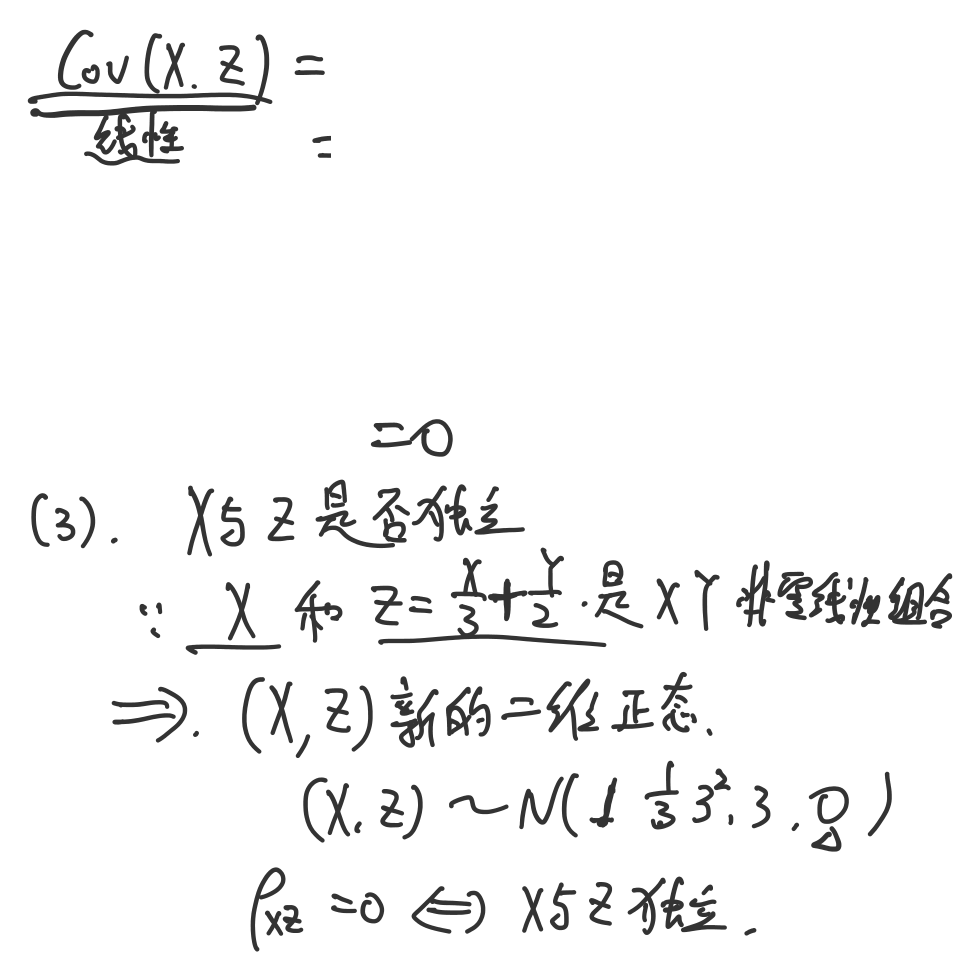 Cov(X.Z) =
线性 =
=0
(3). X与Z是否独立
∵ X 和 Z=X/3+Y/2.是XY非零线性组合
⇒. (X,Z)新的二维正态.
(X.Z)~N(1 1/3 3².3.0)
ρXZ=0⇔X与Z独立.